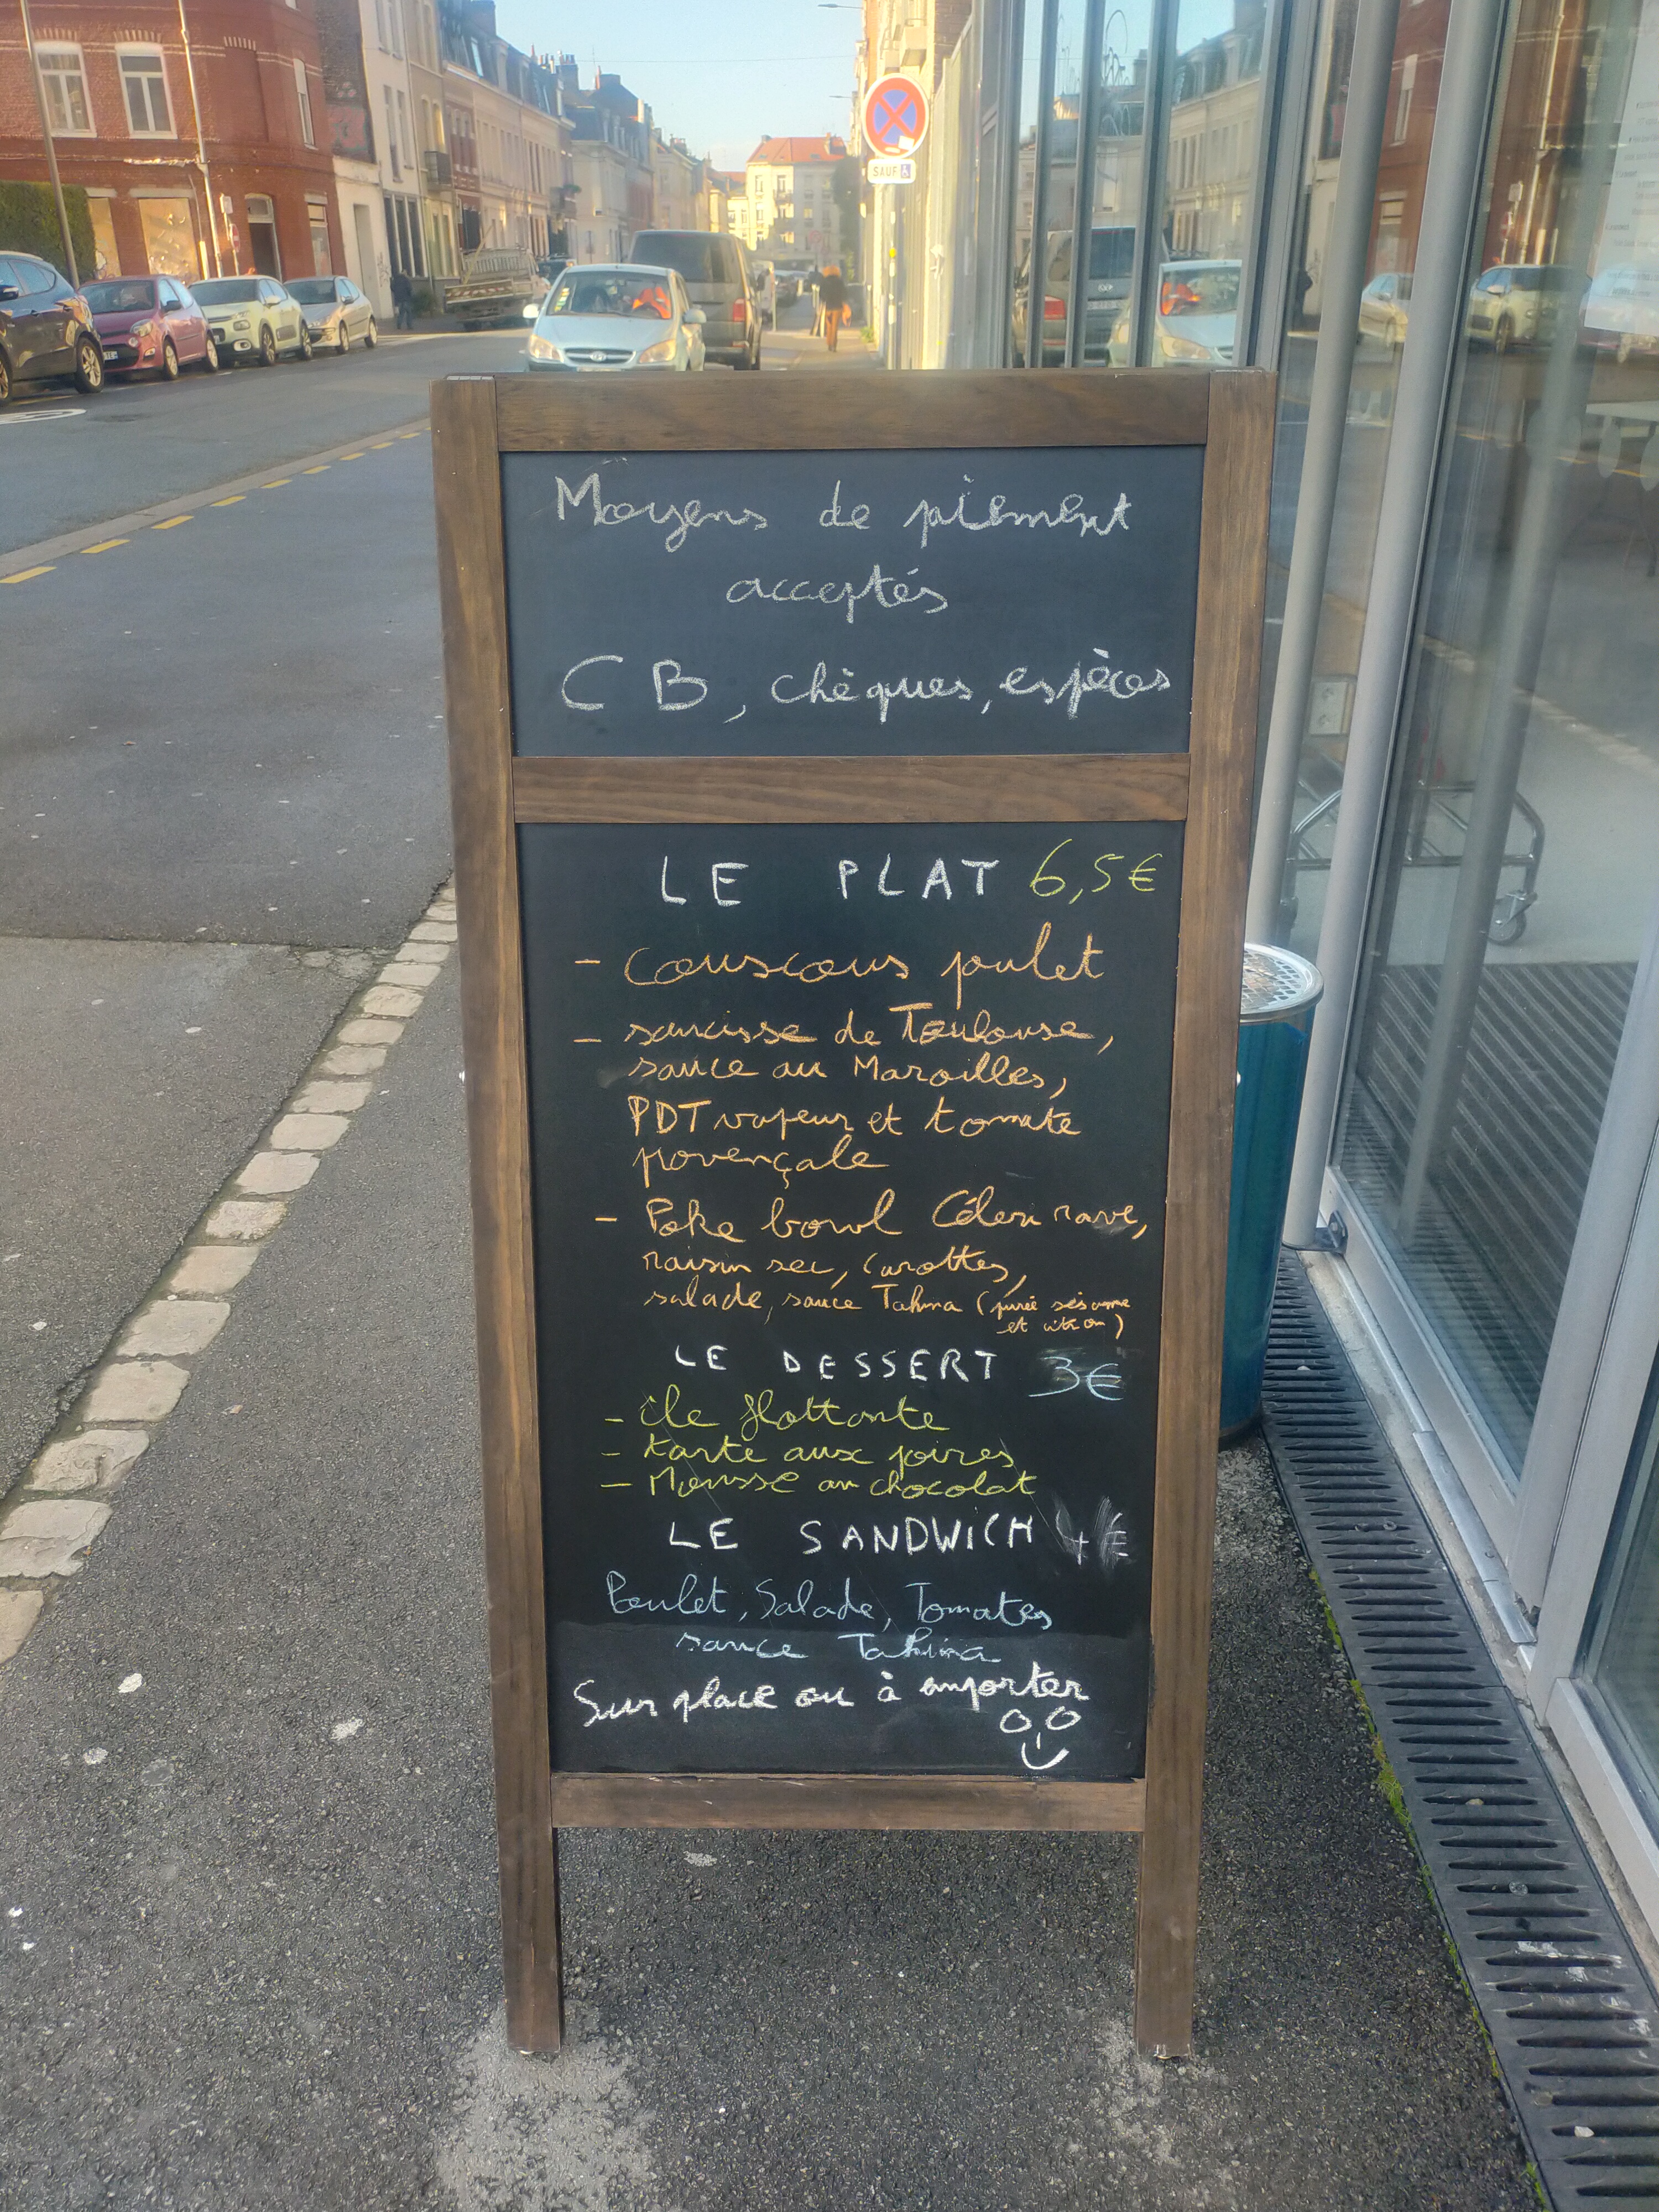 SAUF
Moyens de piement
acceptés
CB, chèques, espèces
LE PLAT 6,5€
- couscous poulet
- saucisse de Toulouse,
sauce au Maroilles,
PDT vapeur et tomate
provençale
- Poke bowl Céleri rave,
raisin sec, carottes,
salade, sauce Tahina (purée sésame
et citron)
LE DESSERT 3€
- île flottante
- tarte aux poires
- Mousse au chocolat
LE SANDWICH 4€
Poulet, Salade, Tomates
sauce Tahina
Sur place ou à emporter